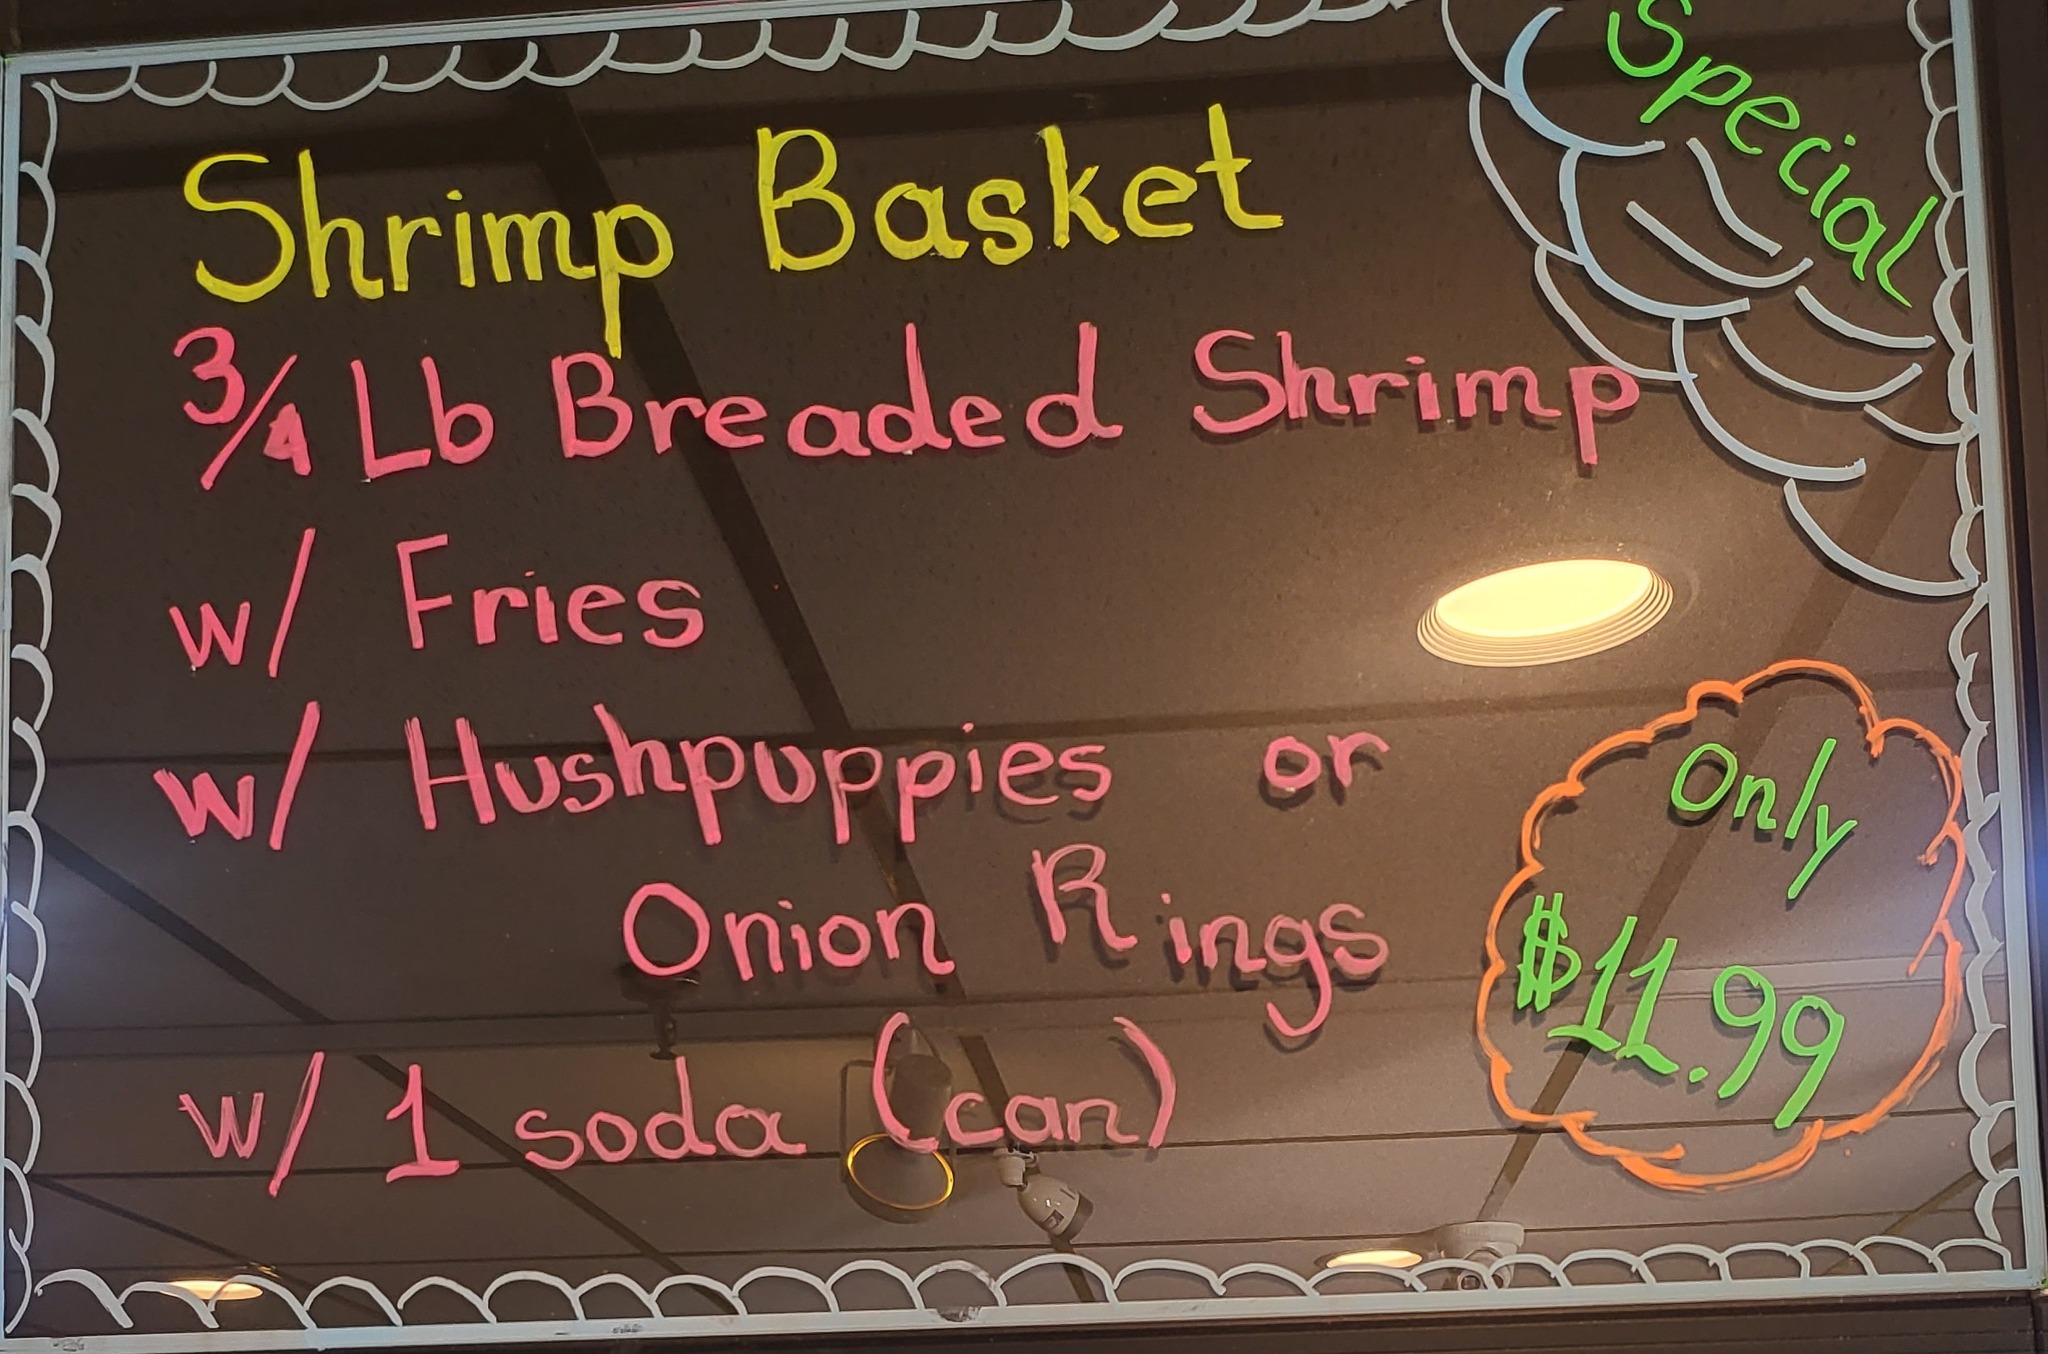 Special
Shrimp Basket
3/4 Lb Breaded Shrimp
w/ Fries
w/ Hushpuppies or
Onion Rings
w/ 1 soda (can)
only
$11.99